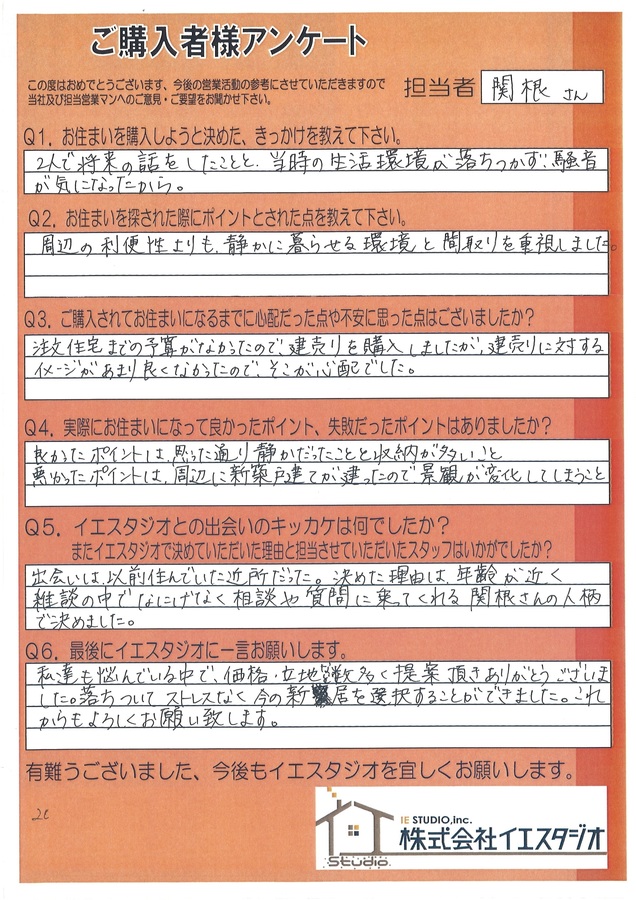 ご購入者様アンケート
この度はおめでとうございます、今後の営業活動の参考にさせていただきますので
当社及び担当営業マンへのご意見・ご要望をお聞かせ下さい。
担当者 関根 さん
Q1. お住まいを購入しようと決めた、きっかけを教えて下さい。
2人で将来の話をしたことと、当時の生活環境が落ちつかず、騒音
が気になったから。
Q2. お住まいを探された際にポイントとされた点を教えて下さい。
周辺の利便性よりも、静かに暮らせる環境と間取りを重視しました。
Q3. ご購入されてお住まいになるまでに心配だった点や不安に思った点はございましたか？
注文住宅までの予算がなかったので、建売りを購入しましたが、建売りに対する
イメージがあまり良くなかったので、そこが心配でした。
Q4. 実際にお住まいになって良かったポイント、失敗だったポイントはありましたか？
良かったポイントは、思った通り静かだったことと収納が多いこと
悪かったポイントは、周辺に新築戸建てが建ったので景観が変化してしまうこと
Q5. イエスタジオとの出会いのキッカケは何でしたか？
またイエスタジオで決めていただいた理由と担当させていただいたスタッフはいかがでしたか？
出会いは、以前住んでいた近所だった。決めた理由は、年齢が近く
雑談の中でなにげなく相談や質問に乗ってくれる関根さんの人柄
で決めました。
Q6. 最後にイエスタジオに一言お願いします。
私達も悩んでいる中で、価格・立地等数多く提案頂きありがとうございま
した。落ちついてストレスなく今の新居を選択することができました。これ
からもよろしくお願い致します。
有難うございました、今後もイエスタジオを宜しくお願いします。
IE STUDIO,inc.
株式会社イエスタジオ
Studio